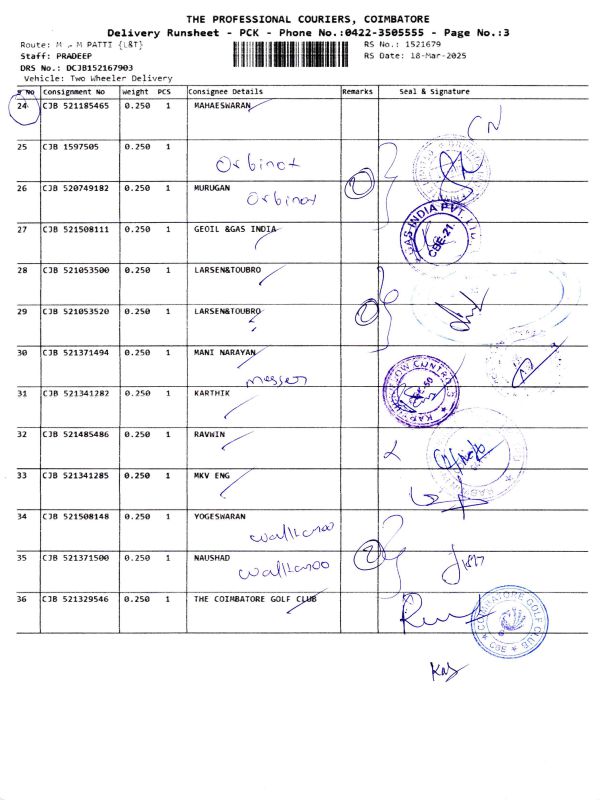 THE PROFESSIONAL COURIERS, COIMBATORE
Delivery Runsheet - PCK - Phone No.:0422-3505555 - Page No.:3
Route: M M PATTI {L&T} RS No.: 1521679
Staff: PRADEEP RS Date: 18-Mar-2025
DRS No.: DCJB152167903
Vehicle: Two Wheeler Delivery
S No Consignment No Weight PCS Consignee Details Remarks Seal & Signature
24 CJB 521185465 0.250 1 MAHAESWARAN
CN
25 CJB 1597505 0.250 1
Orbinox
26 CJB 520749182 0.250 1 MURUGAN 2
Orbinox
27 CJB 521508111 0.250 1 GEOIL &GAS INDIA GAS INDIA PVT. LTD CBE-21.
28 CJB 521053500 0.250 1 LARSEN&TOUBRO
29 CJB 521053520 0.250 1 LARSEN&TOUBRO 2
30 CJB 521371494 0.250 1 MANI NARAYAN
Messer
31 CJB 521341282 0.250 1 KARTHIK
32 CJB 521485486 0.250 1 RAVWIN
33 CJB 521341285 0.250 1 MKV ENG
34 CJB 521508148 0.250 1 YOGESWARAN
35 CJB 521371500 0.250 1 NAUSHAD 2
36 CJB 521329546 0.250 1 THE COIMBATORE GOLF CLUB COIMBATORE GOLF CLUB CBE